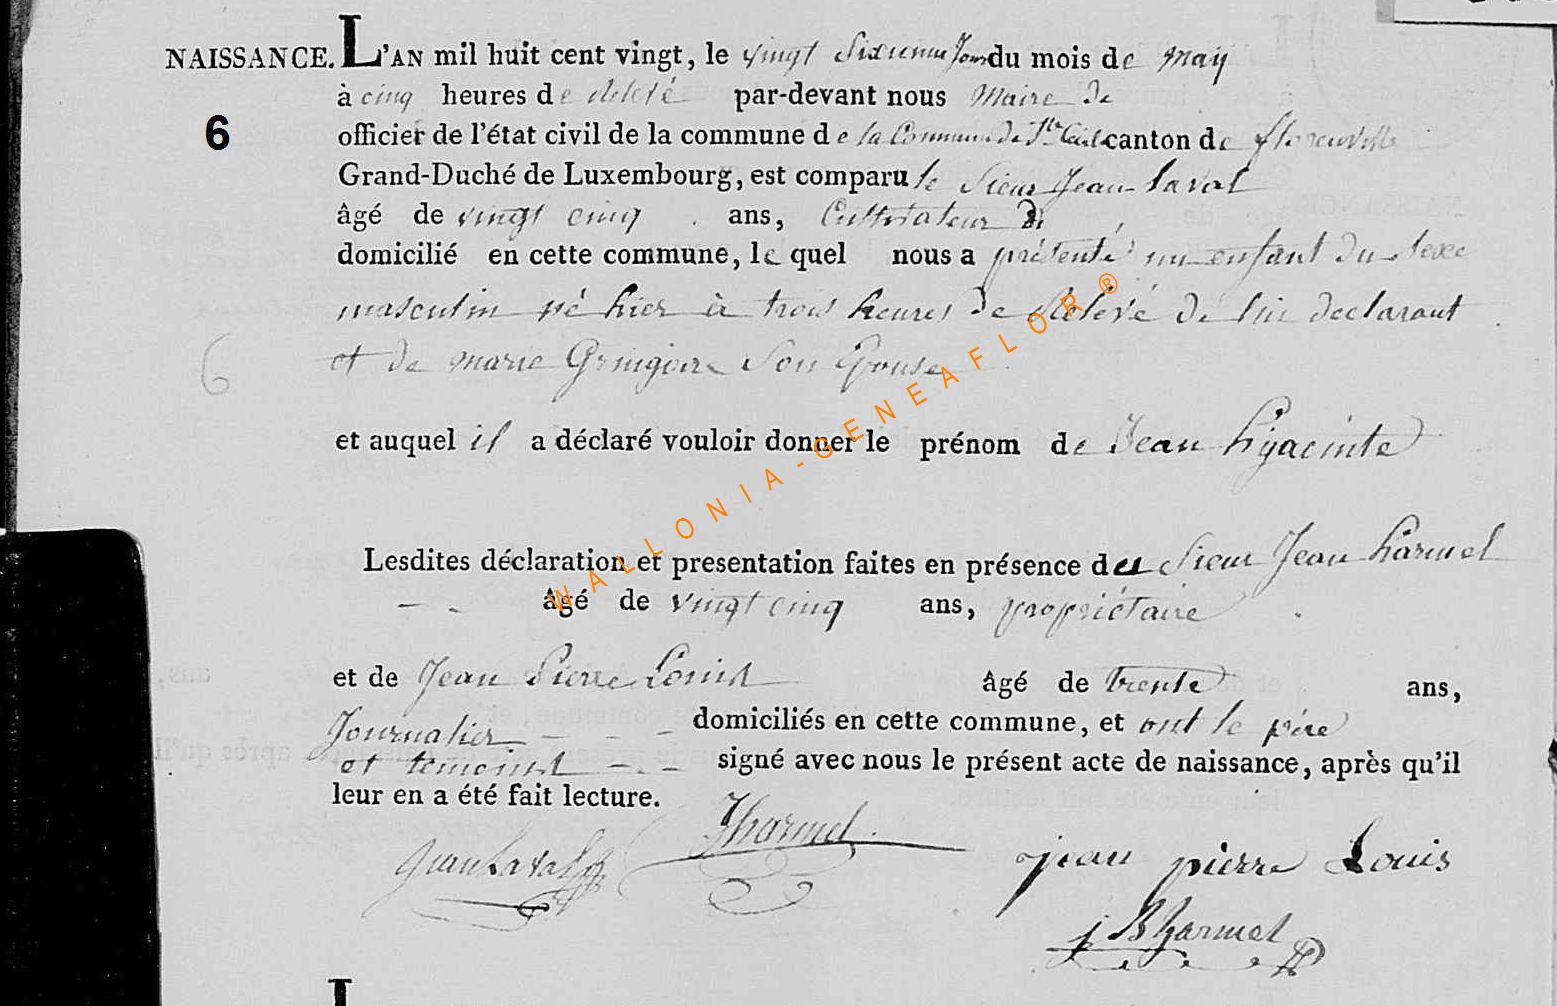 NAISSANCE. L'AN mil huit cent vingt, le vingt Sixieme Jour du mois de may
à cinq heures de relevé par-devant nous Maire de
6
officier de l'état civil de la commune de la Commune de Ste Cecile canton de florenville
Grand-Duché de Luxembourg, est comparu le Sieur Jean Laval
âgé de vingt cinq ans, Cultivateur
domicilié en cette commune, le quel nous a présenté un enfant du sexe
masculin né hier à trois heures de Relevé de lui declarant
6
et de marie Gringoire Son Epouse
et auquel il a déclaré vouloir donner le prénom de Jean hyacinte
Lesdites déclaration et presentation faites en présence des Sieur Jean harmel
âgé de vingt cinq ans, propriétaire
et de Jean Pierre Louis âgé de trente ans,
Journalier domiciliés en cette commune, et ont le père
et temoins signé avec nous le présent acte de naissance, après qu'il
leur en a été fait lecture.
Jean Laval JHarmel
jean pierre Louis
j B harmel
WALLONIA-GENEAFLOR®
L